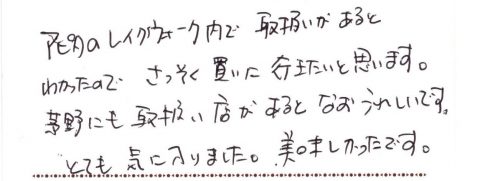 アピタのレイクウォーク内で 取扱いがあると
わかったので さっそく 買いに 行きたいと思います。
茅野にも取扱い店があるとなおうれしいです。
とても 気に入りました。美味しかったです。